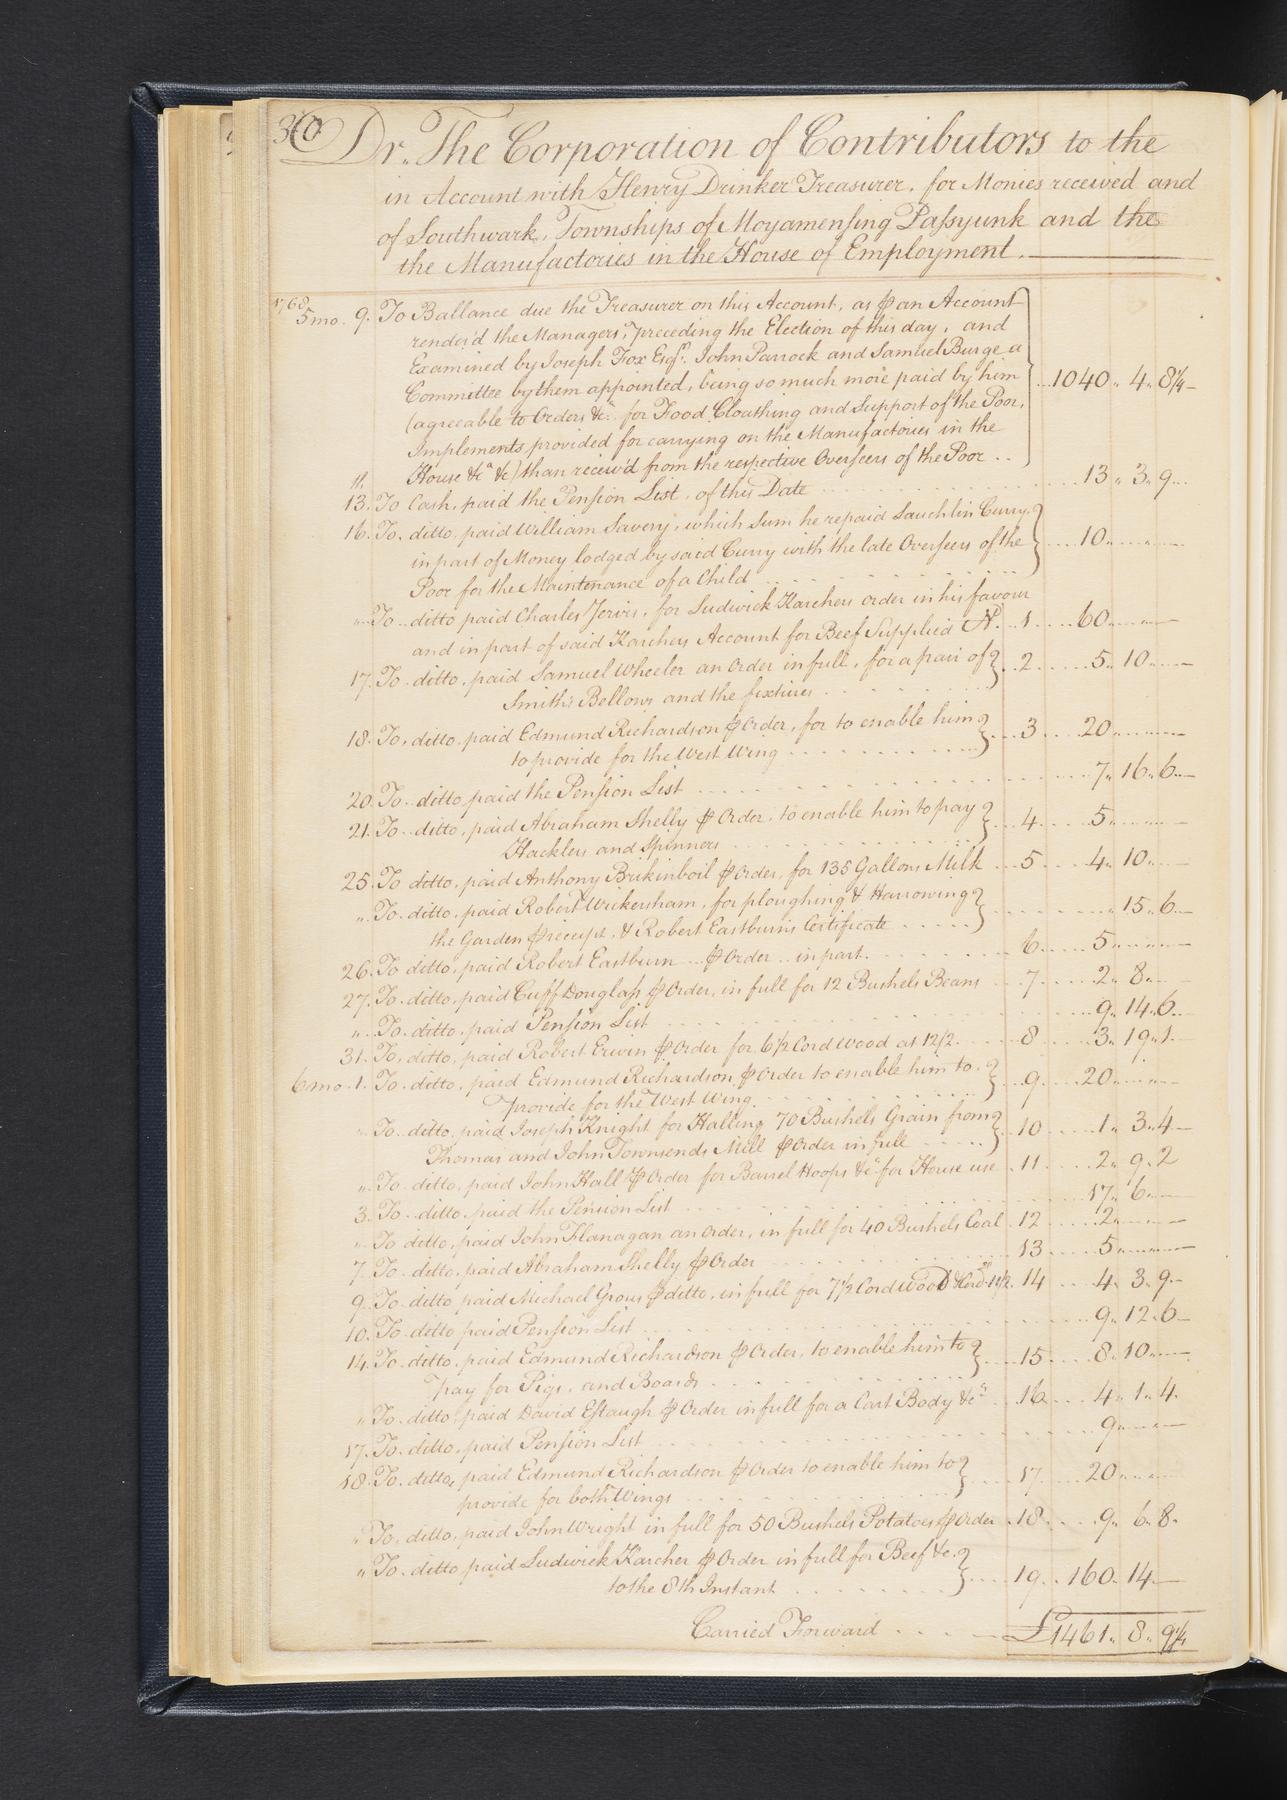 36
Dr. The Corporation of Contributors to the
in Account with Henry Drinker Treasurer, for Monies received and
of Southwark, Townships of Moyamensing Passyunk and the
the Manufactories in the House of Employment.
1768
5 mo. 9. To Ballance due the Treasurer on this Account, as ⅌ an Account
render'd the Managers, preceding the Election of this day, and
Examined by Joseph Fox Esqr. John Parrock and Samuel Burge a
Committee by them appointed, being so much more paid by him 1040 " 4 " 8¼
(agreeable to Orders &c. for Food Cloathing and Support of the Poor,
Implements provided for carrying on the Manufactories in the
House &ca &c) than receiv'd from the respective Overseers of the Poor
13. To Cash, paid the Pension List, of this Date 13 " 3 " 9
16. To. ditto, paid William Savery, which Sum he repaid Lauchlin Curry,
in part of Money lodged by said Curry with the late Overseers of the 10
Poor for the Maintenance of a Child
" To ditto paid Charles Jervis, for Ludwick Karchers order in his favour
and in part of said Karchers Account for Beef Supplied No. 1 60
17. To ditto, paid Samuel Wheeler an Order in full, for a pair of 2 5 " 10
Smith's Bellows and the fixtures
18. To, ditto, paid Edmund Richardson ⅌ Order, for to enable him 3 20
to provide for the West Wing
20. To ditto, paid the Pension List 7 " 16 " 6
21. To ditto, paid Abraham Shelly ⅌ Order, to enable him to pay 4 5
Hacklers and Spinners
25. To ditto, paid Anthony Brikinboil ⅌ Order, for 135 Gallons Milk 5 4 " 10
" To ditto, paid Robert Wickersham, for ploughing & Harrowing " 15 " 6
the Garden ⅌ receipt, & Robert Eastburn's Certificate
26. To ditto, paid Robert Eastburn ⅌ Order in part. 6 5
27. To ditto, paid Cuff Douglass ⅌ Order, in full for 12 Bushels Beans 7 2 " 8
" To ditto, paid Pension List 9 " 14 " 6
31. To, ditto, paid Robert Erwin ⅌ Order for 6½ Cord Wood at 12/2 8 3 " 19 " 1
6 mo. 1. To ditto, paid Edmund Richardson ⅌ Order to enable him to 9 20
provide for the West Wing
" To ditto, paid Joseph Knight for Halling 70 Bushells Grain from 10 1 " 3 " 4
Thomas and John Townsends Mill ⅌ Order in full
" To ditto, paid John Hall ⅌ Order for Barrel Hoops &ca for House use 11 2 " 9 " 2
3. To ditto, paid the Pension List 17 " 6
" To ditto, paid John Flanagan an Order, in full for 40 Bushels Coal 12 2
7. To ditto, paid Abraham Shelly ⅌ Order 13 5
9. To ditto, paid Michael Grous ⅌ ditto, in full for 7½ Cord Wood 14 4 " 3 " 9
10. To ditto paid Pension List 9 " 12 " 6
14. To ditto, paid Edmund Richardson ⅌ Order, to enable him to 15 8 " 10
pay for Pigs, and Boards
" To ditto, paid David Estaugh ⅌ Order in full for a Cart Body &ca 16 4 " 1 " 4
17. To ditto, paid Pension List 9
18. To ditto, paid Edmund Richardson ⅌ Order to enable him to 17 20
provide for both Wings
" To, ditto, paid John Wright in full for 50 Bushels Potatoes ⅌ Order 18 9 " 6 " 8
" To ditto paid Ludwick Karcher ⅌ Order in full for Beef &c. 19 160 " 14
to the 8th Instant
Carried Forward £1461 " 8 " 9¼